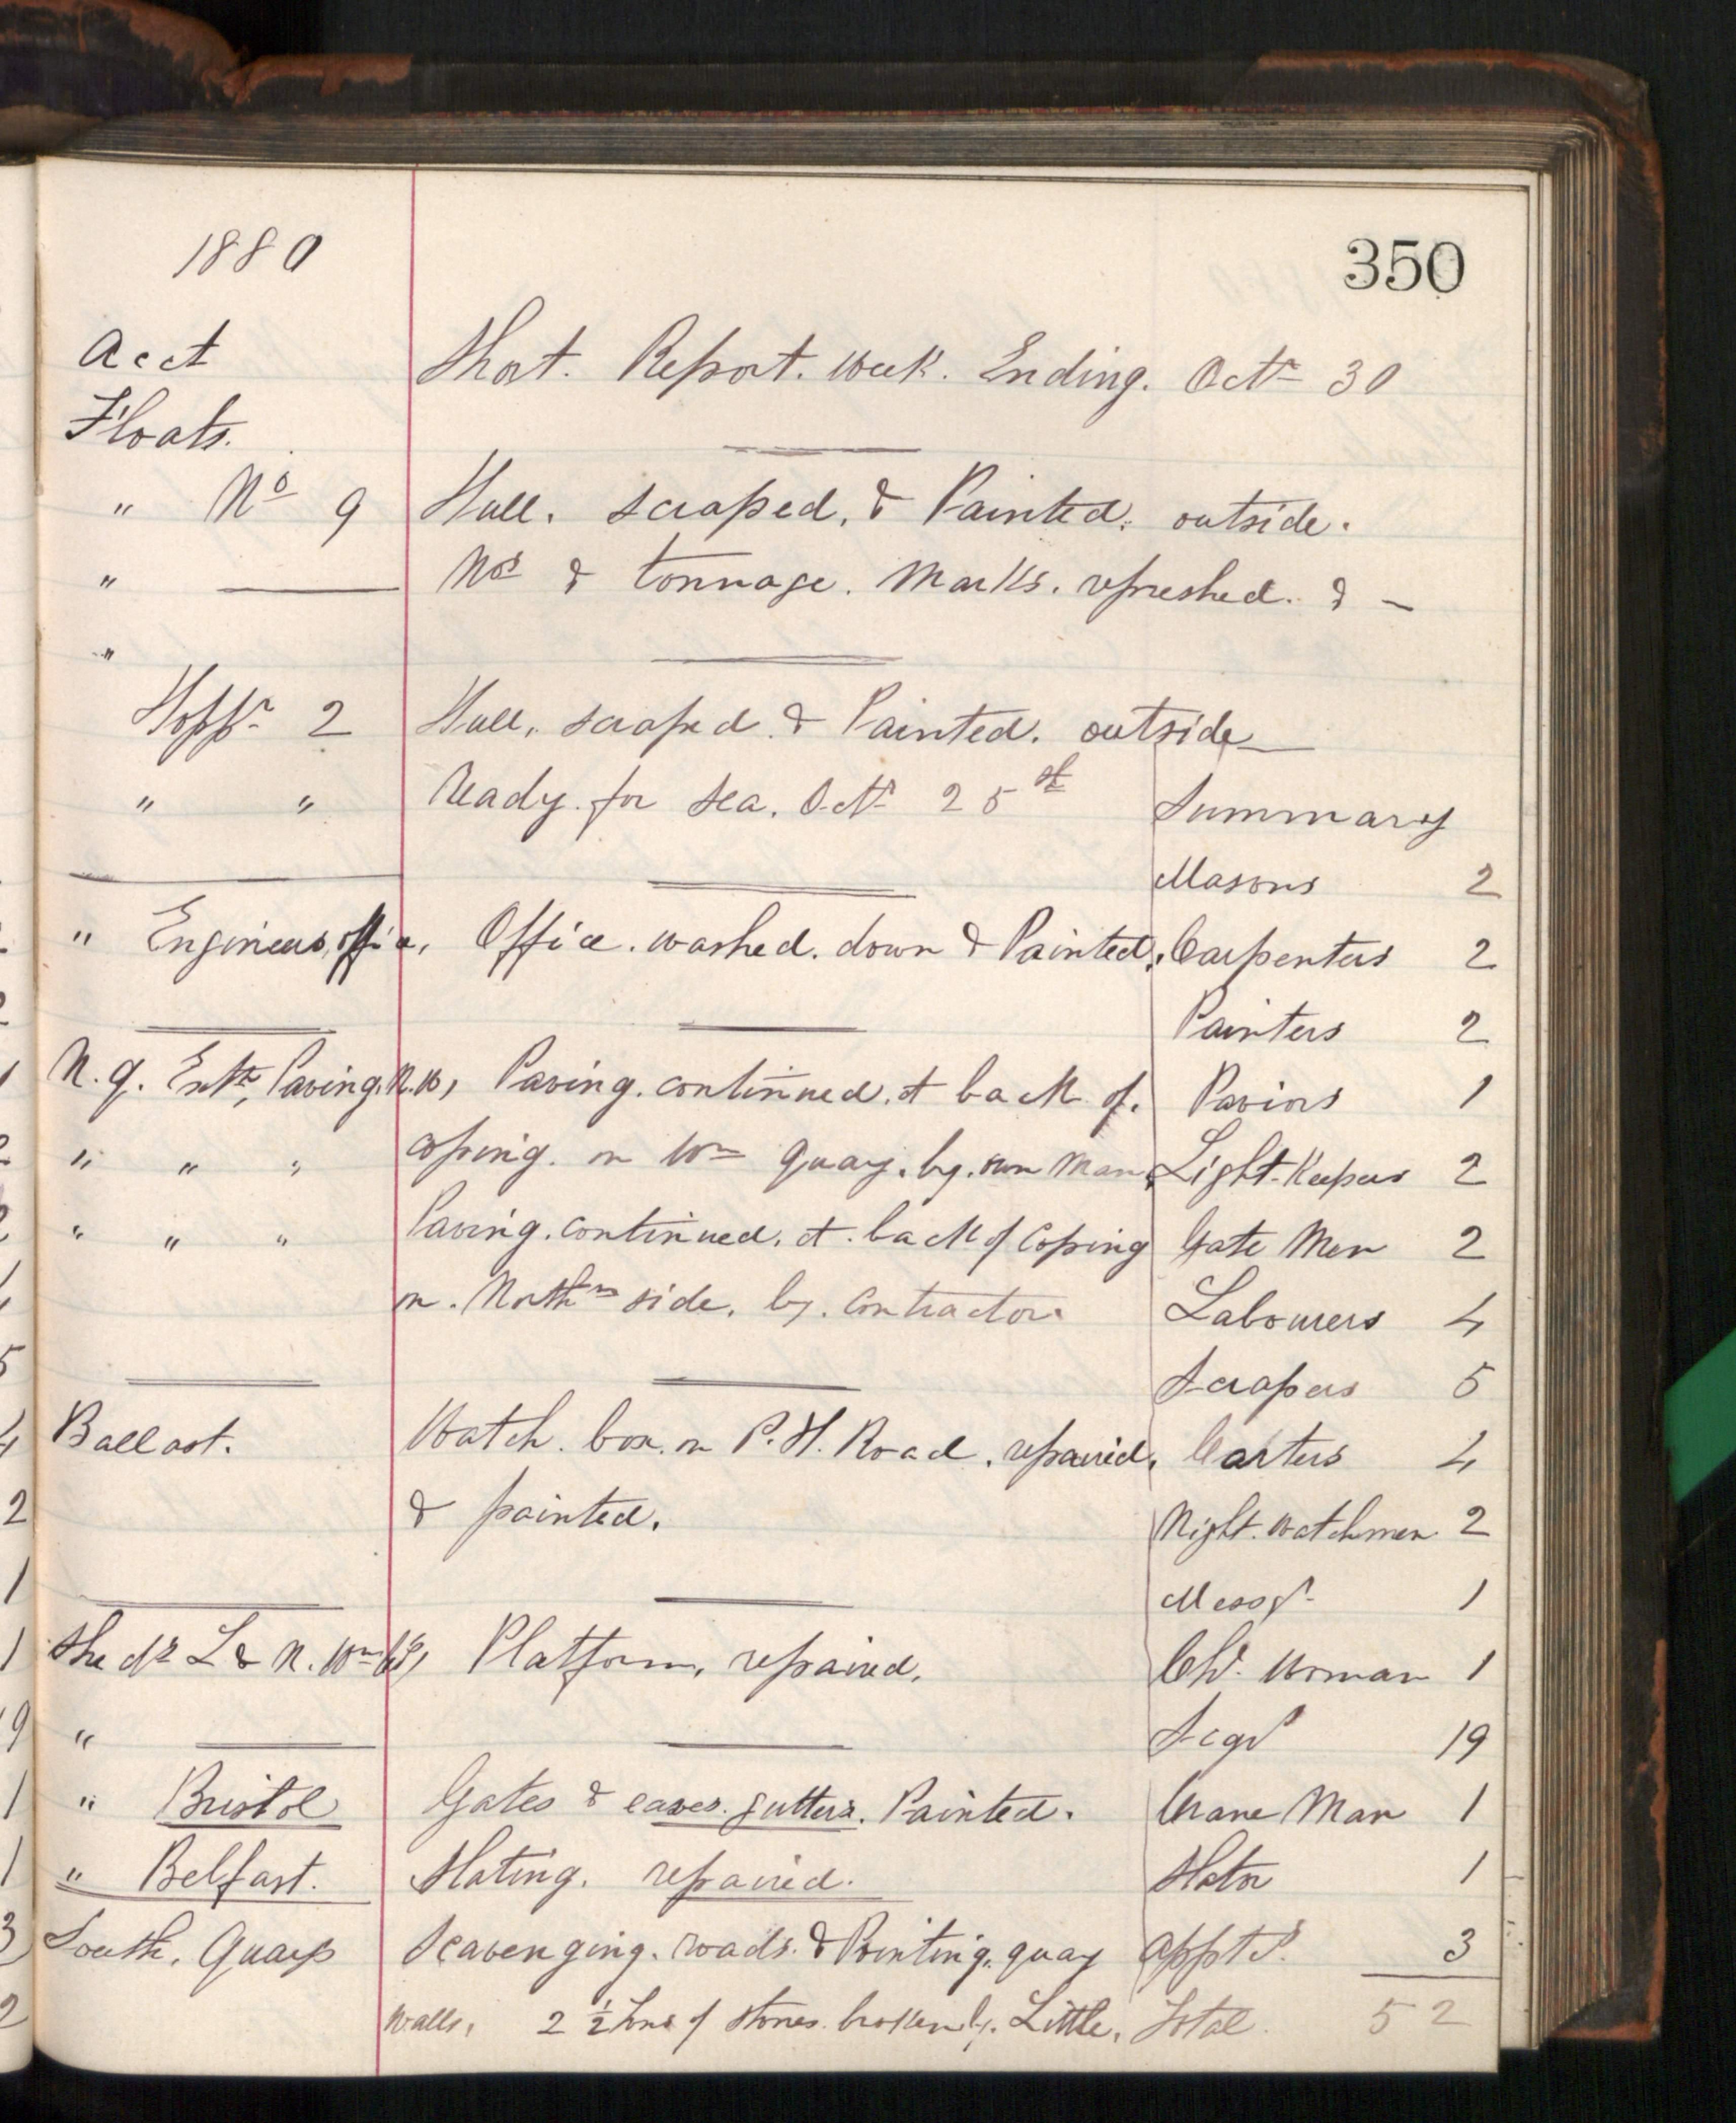 1880
350
Acct Short. Report. Week. Ending. Octr 30
Floats.
" No 9 Hull. scraped. & Painted. outside.
" Nos & tonnage. Marks. refreshed. & -
"
Hoppr 2 Hull. scraped. & Painted. outside
" " Ready. for sea. Octr 25th Summary
Masons 2
" Engineers, office, Office. washed. down & Painted, Carpenters 2
Painters 2
N. 9. Entce, Paving. N. W, Paving. continued. at back of. Paviors 1
" " " coping. on Wn Quay. by. own Man, Light-Keepers 2
" " " Paving. continued. at. back of Coping Gate Men 2
on. Northn side. by. Contractors Labourers 4
Scrapers 5
Ballast. Watch. box. on P. H. Road. repaired, Carters 4
& painted. Night. Watchmen 2
Messr 1
Sheds L & N. Wn Platform, repaired. Chr. Woman 1
" 19
" Bristol Gates & eaves. gutters. Painted. Crane Man 1
" Belfast. Slating. repaired. Slater 1
South. Quays Scavenging. roads. & Pointing. quay Appts. 3
walls, 2 ½ tons of stones. broken by. Little, Total. 52